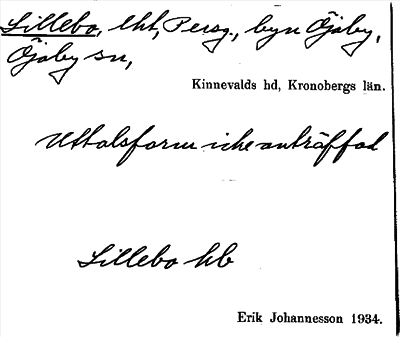 Lillebo, lht, Persg., byn Öjaby,
Öjaby sn,
Kinnevalds hd, Kronobergs län.
Uttalsform icke anträffad
Lillebo hb
Erik Johannesson 1934.